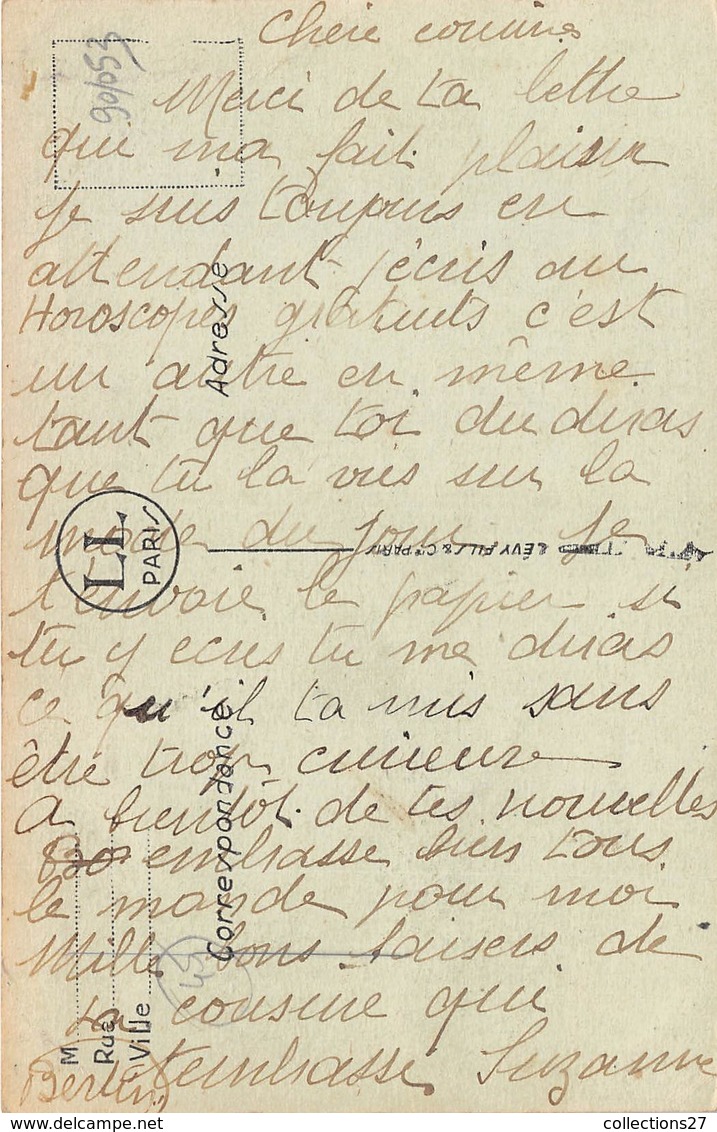 Cherie cousine
Merci de ta lettre
que ma fait plaisir
je suis toujours en
attendant j'écris au
Horoscopes gratuits c'est
un autre en même
tant que toi du diras
que tu la vus sur la
mode du jour Je
t'envoie le papier si
tu y ecris tu me diras
ce qu'il ta mis sans
être trop curieuse
A bientôt de tes nouvelles
embrasse bien tous
le monde pour moi
Mille bons baisers de
ta cousine qui
t'embrasse Suzanne
90/053
Adresse
Correspondance
LL
PARIS
LÉVY FILS & Cie PARIS
M
Rue
Ville
collections27